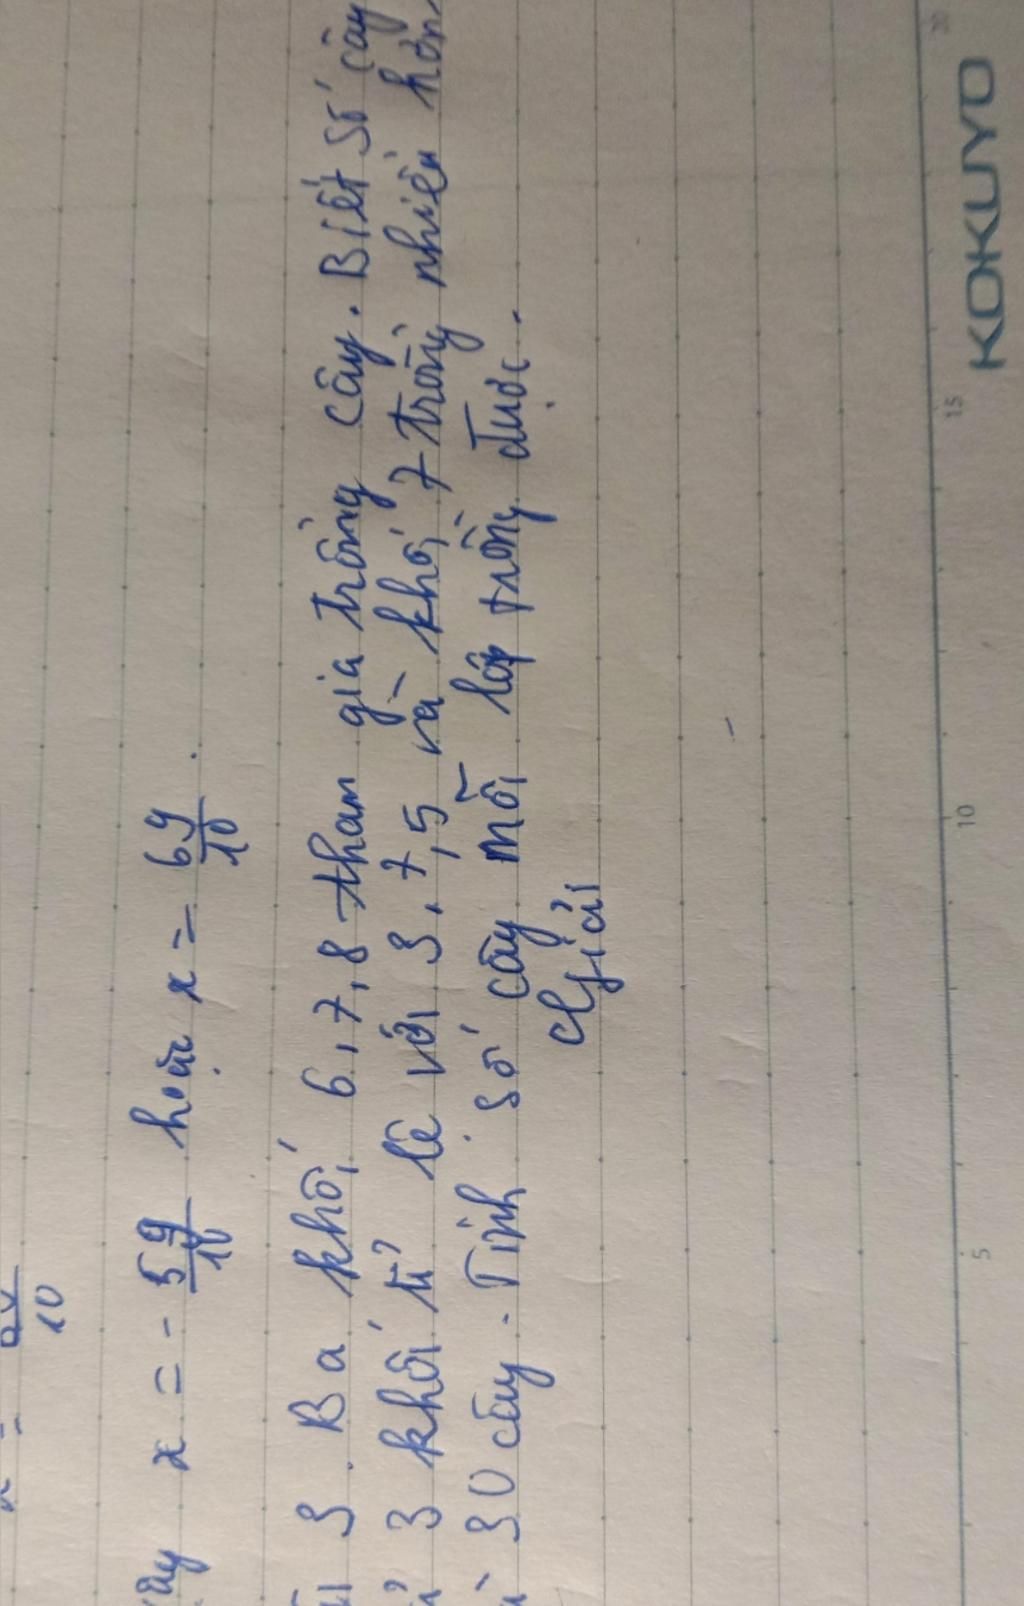 10
x = - 59/10 hoặc x = 69/10 .
3. Ba khối 6, 7, 8 tham gia trồng cây. Biết số cây
3 khối tỉ lệ với 3, 7, 5 và khối 7 trồng nhiều hơn
30 cây. Tính số cây mỗi lớp trồng được.
Giải
5 10 15 20
KOKUYO